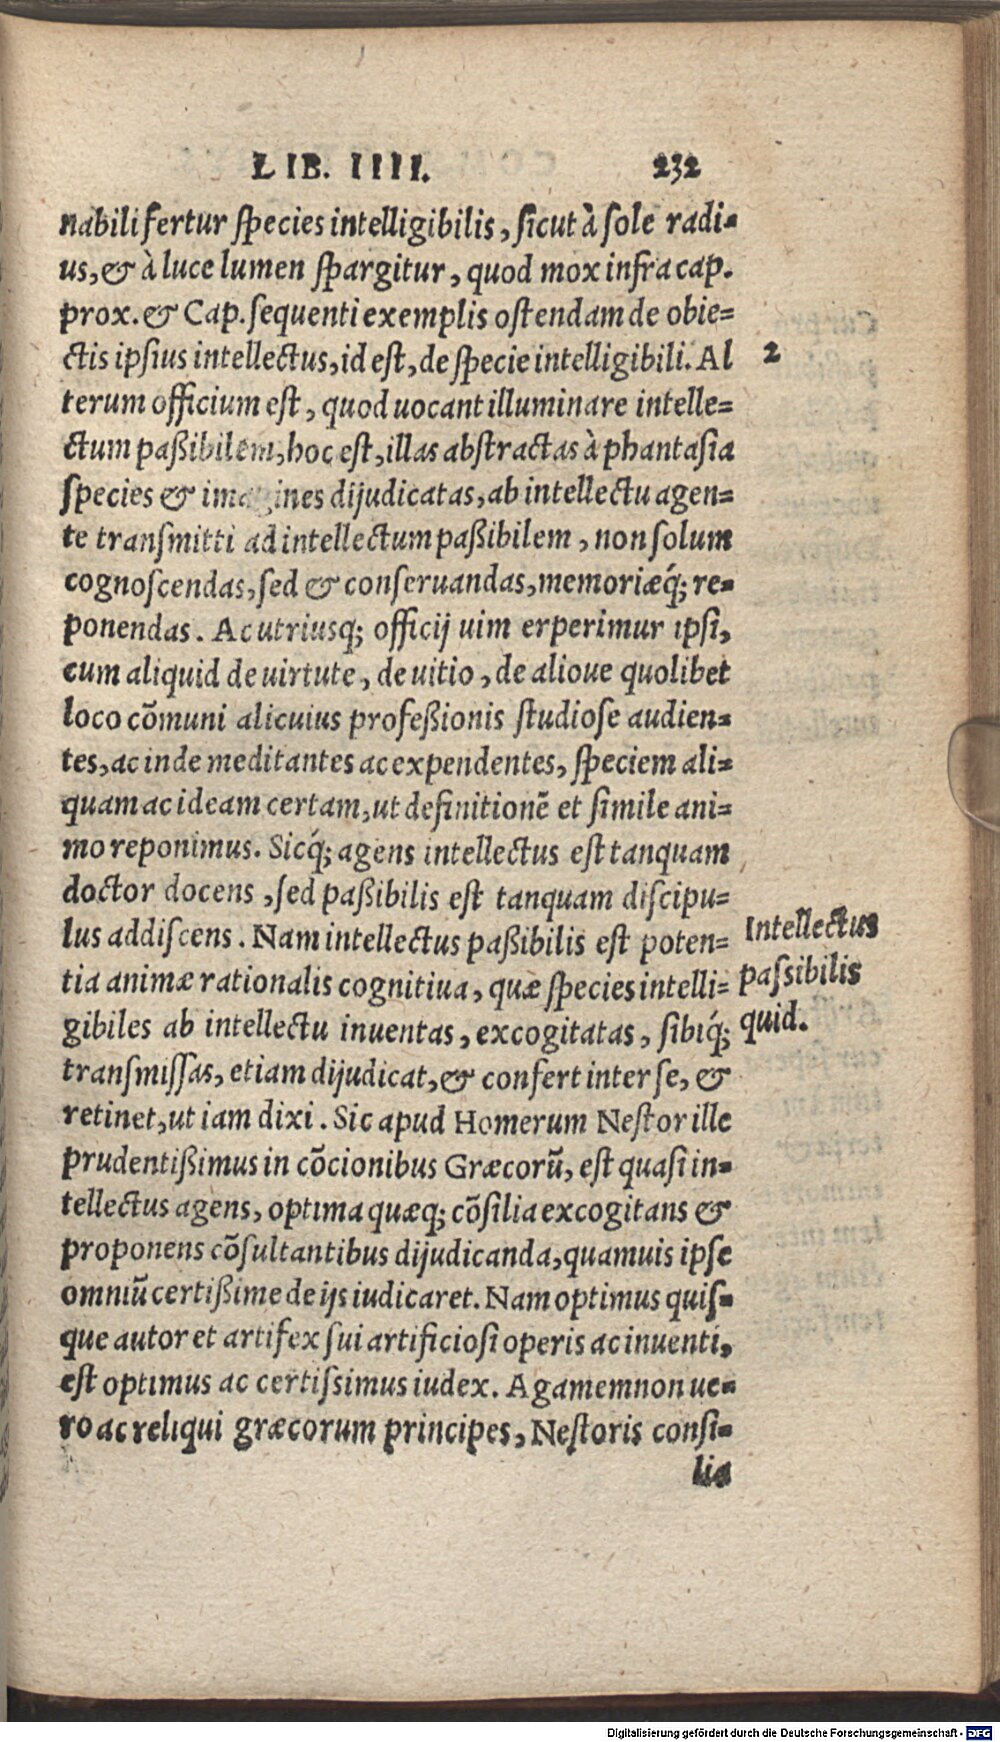 LIB. IIII. 232
nabili fertur ſpecies intelligibilis, ſicut à ſole radi-
us, & à luce lumen ſpargitur, quod mox infra cap.
prox. & Cap. ſequenti exemplis oſtendam de obie=
ctis ipſius intellectus, id eſt, de ſpecie intelligibili. Al 2
terum officium eſt, quod uocant illuminare intelle=
ctum paßibilem, hoc eſt, illas abſtractas à phantaſia
ſpecies & imagines dijudicatas, ab intellectu agen=
te tranſmitti ad intellectum paßibilem, non ſolum
cognoſcendas, ſed & conſeruandas, memoriæq́; re-
ponendas. Ac utriusq; officij uim erperimur ipſi,
cum aliquid de uirtute, de uitio, de alioue quolibet
loco cõmuni alicuius profeßionis ſtudioſe audien-
tes, ac inde meditantes ac expendentes, ſpeciem ali=
quam ac ideam certam, ut definitionẽ et ſimile ani=
mo reponimus. Sicq́; agens intellectus eſt tanquam
doctor docens, ſed paßibilis eſt tanquam diſcipu=
lus addiſcens. Nam intellectus paßibilis eſt poten= Intellectus
tia animæ rationalis cognitiua, quæ ſpecies intelli= paſsibilis
gibiles ab intellectu inuentas, excogitatas, ſibiq́; quid.
tranſmiſſas, etiam dijudicat, & confert inter ſe, &
retinet, ut iam dixi. Sic apud Homerum Neſtor ille
prudentißimus in cõcionibus Græcorũ, eſt quaſi in-
tellectus agens, optima quæq; cõſilia excogitans &
proponens cõſultantibus dijudicanda, quamuis ipſe
omniũ certißime de ijs iudicaret. Nam optimus quiſ-
que autor et artifex ſui artificioſi operis ac inuenti,
eſt optimus ac certiſsimus iudex. Agamemnon ue-
ro ac reliqui græcorum principes, Neſtoris conſi-
lia
Digitalisierung gefördert durch die Deutsche Forschungsgemeinschaft - DFG